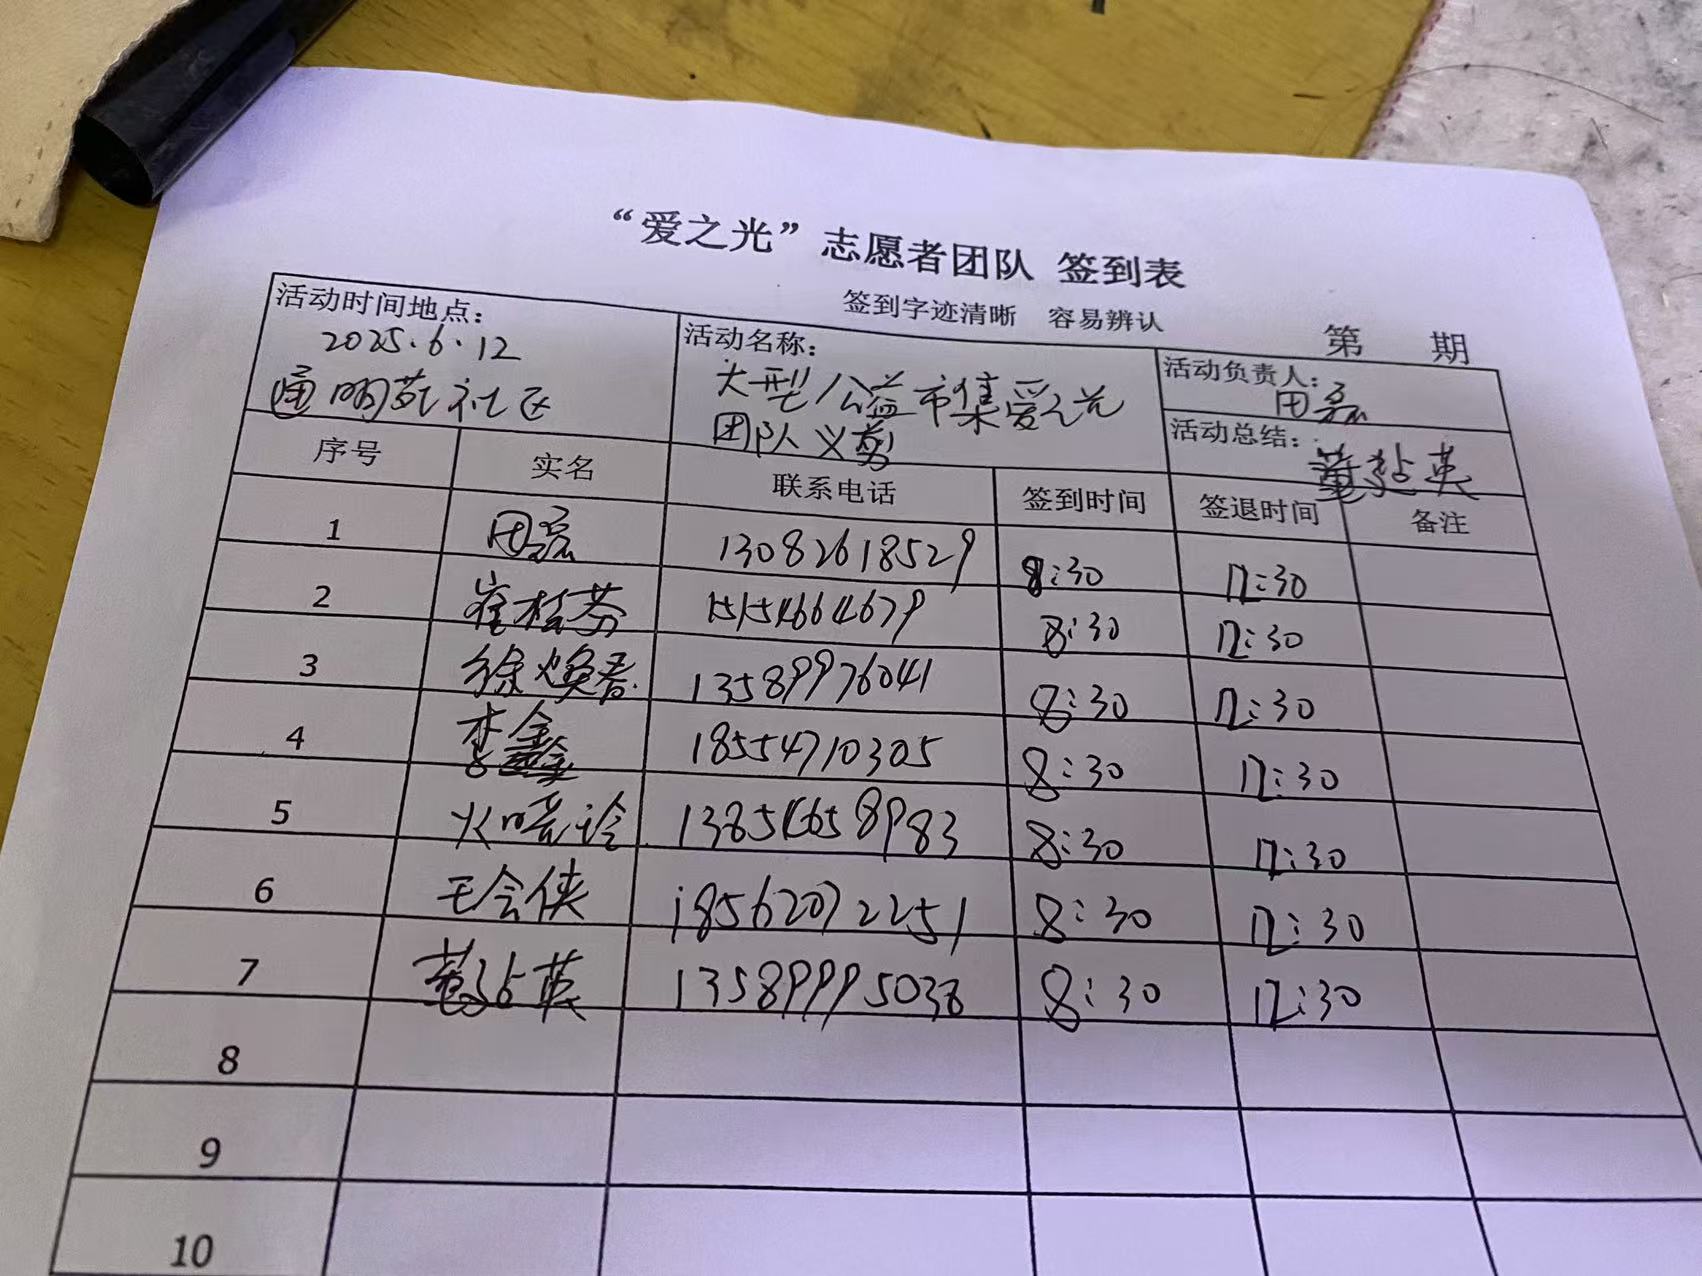 “爱之光”志愿者团队 签到表
签到字迹清晰 容易辨认
第 期
活动时间地点：
2025.6.12
通明苑社区
活动名称：
大型公益市集爱之光
团队义剪
活动负责人：
田磊
活动总结：
董沾英
序号 实名 联系电话 签到时间 签退时间 备注
1 田磊 13082618529 8:30 12:30
2 崔桂芬 15154664679 8:30 12:30
3 徐焕春 13589976041 8:30 12:30
4 李鑫 18554710305 8:30 12:30
5 13854658983 8:30 12:30
6 王会侠 18562072251 8:30 12:30
7 董沾英 13589995038 8:30 12:30
8
9
10